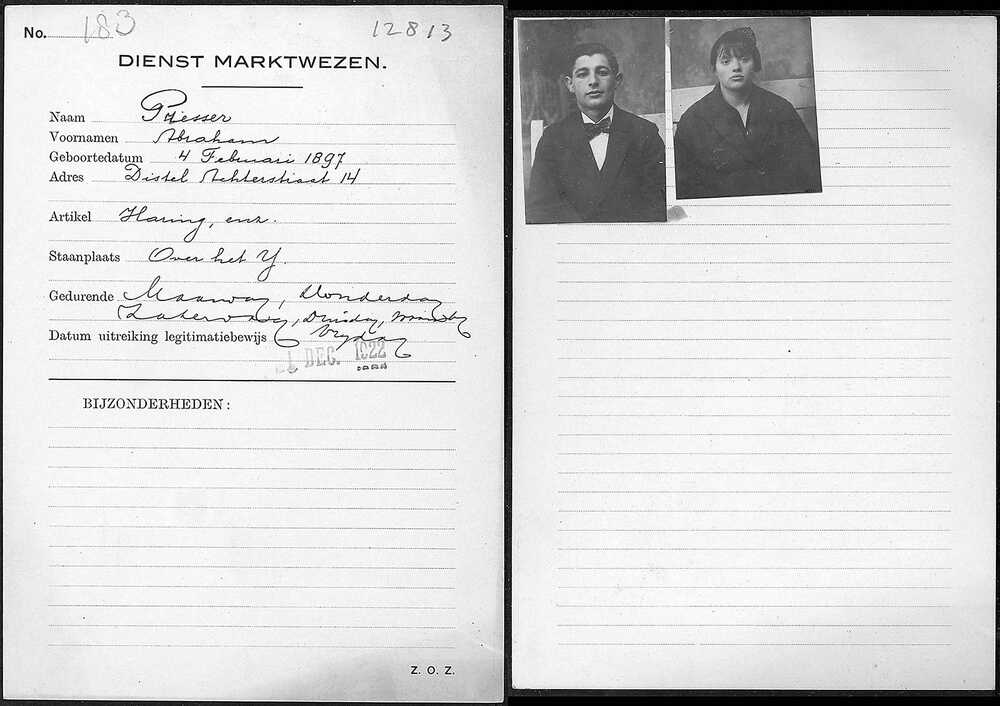 No. 183 12813
DIENST MARKTWEZEN.
Naam Presser
Voornamen Abraham
Geboortedatum 4 Februari 1897
Adres Distel Achterstraat 14
Artikel Haring, enz.
Staanplaats Over het Y.
Gedurende Maandag, Donderdag
Zaterdag, Dinsdag, Woensdag
Datum uitreiking legitimatiebewijs Vrydag
1 DEC. 1922
BIJZONDERHEDEN:
Z. O. Z.